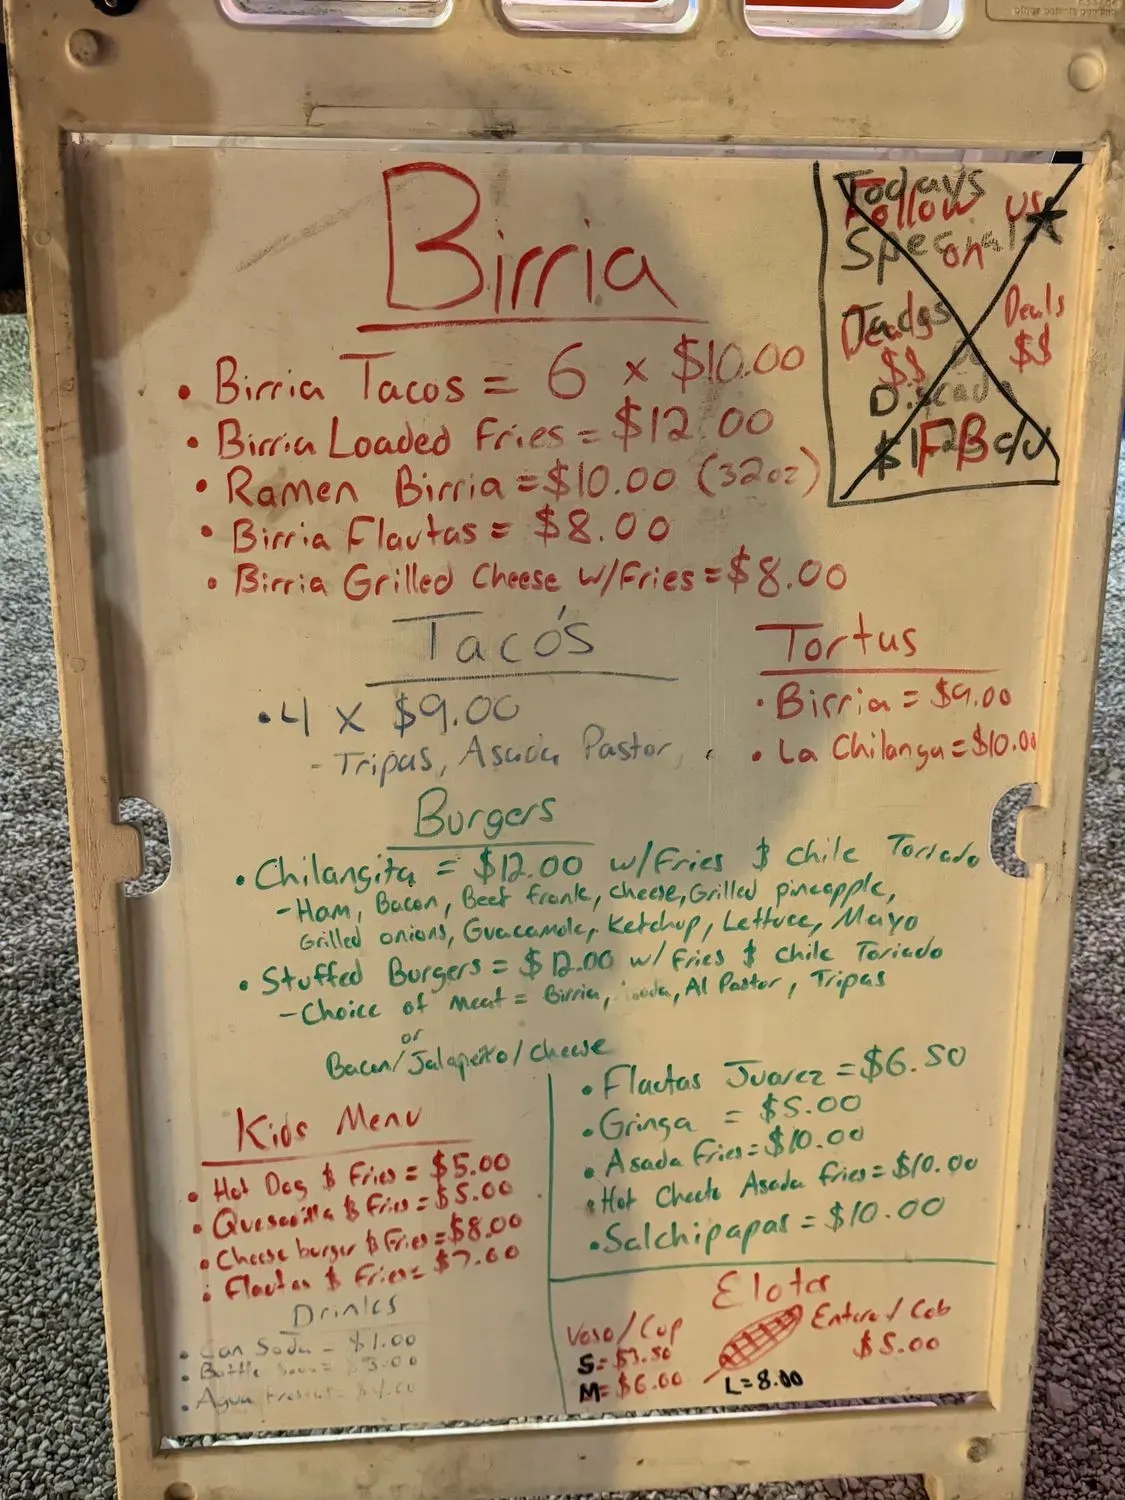 Birria
• Birria Tacos = 6 x $10.00
• Birria Loaded Fries = $12.00
• Ramen Birria = $10.00 (32oz)
• Birria Flautas = $8.00
• Birria Grilled Cheese w/Fries = $8.00
Todays
Follow us
Special
on
Deals
Deals
$$
$$
Discada
FB
Tacó's
• 4 x $9.00
- Tripas, Asada Pastor,
Tortus
• Birria = $9.00
• La Chilanga = $10.00
Burgers
• Chilangita = $12.00 w/Fries $ chile Toriado
- Ham, Bacon, Beef frank, cheese, Grilled pineapple,
Grilled onions, Guacamole, Ketchup, Lettuce, Mayo
• Stuffed Burgers = $12.00 w/ Fries $ chile Toriado
- Choice of meat = Birria, Al Pastor, Tripas
or
Bacon/Jalapeño/cheese
Kids Menu
• Hot Dog $ Fries = $5.00
• Quesadilla $ Fries = $5.00
• Cheese burger $ Fries = $8.00
• Flautas $ Fries = $7.00
Drinks
• Can Soda = $1.00
• Bottle = $3.00
• Agua
• Flautas Juarez = $6.50
• Gringa = $5.00
• Asada Fries = $10.00
• Hot Cheeto Asada fries = $10.00
• Salchipapas = $10.00
Elotes
Vaso/Cup
S = $3.50
M = $6.00
L = 8.00
Entero/ Cob
$5.00